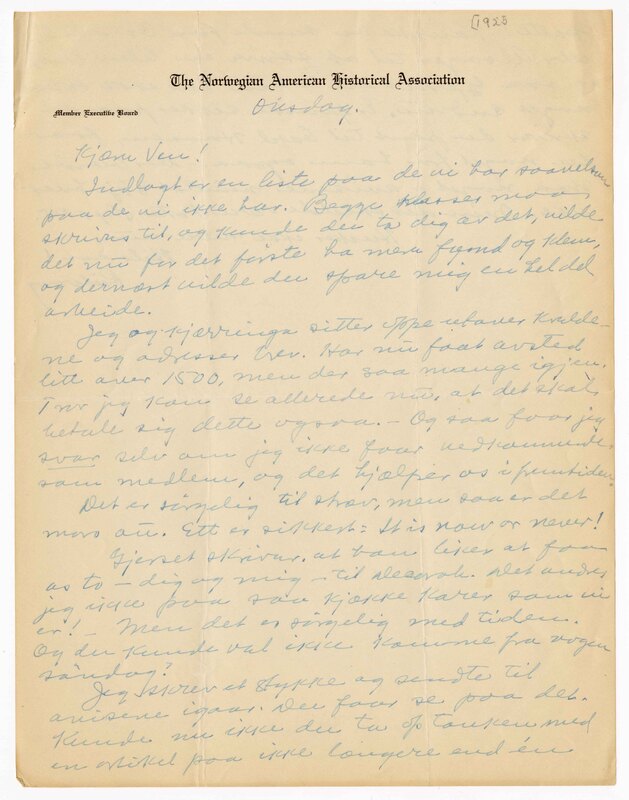 [1925
The Norwegian American Historical Association
Member Executive Board
Onsdag.
Kjære Ven!
Indlagt er en liste paa de vi har saavelsom
paa de vi ikke har. Begge klasser maa
skrives til, og kunde du ta dig av det, vilde
det nu for det første ha mere fynd og klem,
og dernæst vilde du spare mig en hel del
arbeide.
Jeg og kjærringa sitter oppe utover kvelde-
ne og adresser brev. Har nu faat avsted
litt over 1500, men der saa mange igjen.
Tror jeg kan se allerede nu, at det skal
betale sig dette ogsaa. – Og saa faar jeg
svar selv om jeg ikke faar vedkommende
som medlem, og det hjælper os i fremtiden.
Det er sørgelig til stræv, men saa er det
moro au. Ett er sikkert: It is now or never!
Gjerset skriver, at han liker at faa
os to – dig og mig – til Decorah. Det undres
jeg ikke paa saa kjække karer som vi
er! – Men det er sørgelig med tiden.
Og du kunde vel ikke komme fra nogen
søndag?
Jeg skrev et stykke og sendte til
avisene igaar. Du faar se paa det.
Kunde nu ikke du ta op tanken med
en artikel paa ikke længere end én